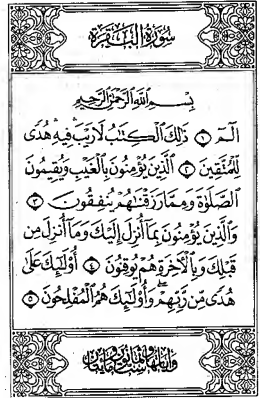 سُورَةُ الْبَقَرَةِ
بِسْمِ اللَّهِ الرَّحْمَٰنِ الرَّحِيمِ
الٓمٓ ١ ذَٰلِكَ ٱلْكِتَٰبُ لَا رَيْبَ ۛ فِيهِ ۛ هُدًى
لِّلْمُتَّقِينَ ٢ ٱلَّذِينَ يُؤْمِنُونَ بِٱلْغَيْبِ وَيُقِيمُونَ
ٱلصَّلَوٰةَ وَمِمَّا رَزَقْنَٰهُمْ يُنفِقُونَ ٣
وَٱلَّذِينَ يُؤْمِنُونَ بِمَآ أُنزِلَ إِلَيْكَ وَمَآ أُنزِلَ مِن
قَبْلِكَ وَبِٱلْأَخِرَةِ هُمْ يُوقِنُونَ ٤ أُو۟لَٰٓئِكَ عَلَىٰ
هُدًى مِّن رَّبِّهِمْ ۖ وَأُو۟لَٰٓئِكَ هُمُ ٱلْمُفْلِحُونَ ٥